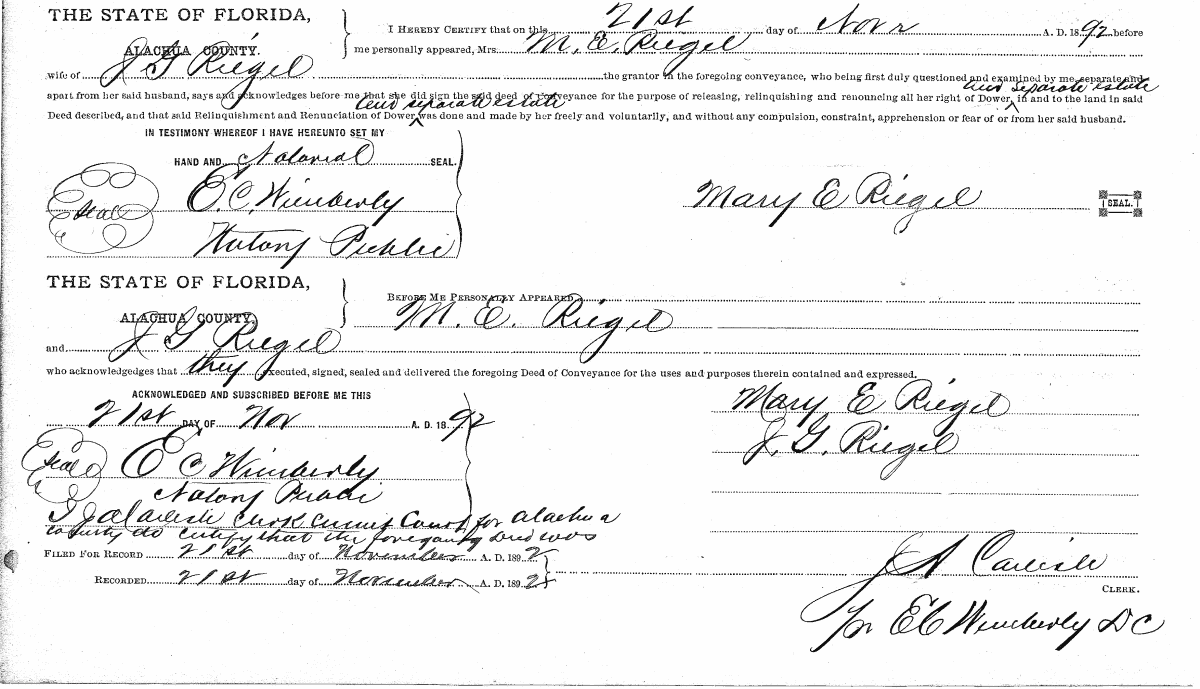 THE STATE OF FLORIDA,
ALACHUA COUNTY.
I HEREBY CERTIFY that on this 21st day of Novr A. D. 1892 before
me personally appeared, Mrs. M. E. Riegel
wife of J G Riegel the grantor in the foregoing conveyance, who being first duly questioned and examined by me separate and
and separate estate
apart from her said husband, says and acknowledges before me that she did sign the said deed of conveyance for the purpose of releasing, relinquishing and renouncing all her right of Dower, in and to the land in said
and separate estate
Deed described, and that said Relinquishment and Renunciation of Dower, was done and made by her freely and voluntarily, and without any compulsion, constraint, apprehension or fear of or from her said husband.
IN TESTIMONY WHEREOF I HAVE HEREUNTO SET MY
HAND AND Notarial SEAL.
Seal
E. C. Wimberly
Notary Public
Mary E Riegel
SEAL.
THE STATE OF FLORIDA,
ALACHUA COUNTY.
BEFORE ME PERSONALLY APPEARED
M. E. Riegel
and J G Riegel
who acknowledges that they executed, signed, sealed and delivered the foregoing Deed of Conveyance for the uses and purposes therein contained and expressed.
ACKNOWLEDGED AND SUBSCRIBED BEFORE ME THIS
21st DAY OF Nov A. D. 1892
Seal
E C Wimberly
Notary Public
Mary E Riegel
J. G. Riegel
I J A Carlisle Clerk Circuit Court for Alachua
County do certify that the foregoing Deed was
FILED FOR RECORD 21st day of November A. D. 1892
RECORDED 21st day of November A. D. 1892
J A Carlisle
CLERK.
Pr E C Wimberly D C